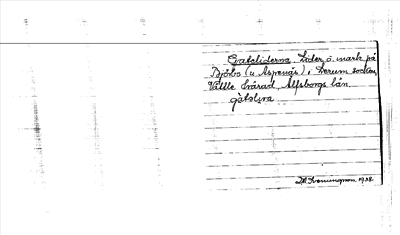 Gatoliderna. Lider o. mark på
Djöbo (u. Aspenäs) i Lerum socken,
Vättle härad, Älfsborgs län.
gåtoliɼa
1938.